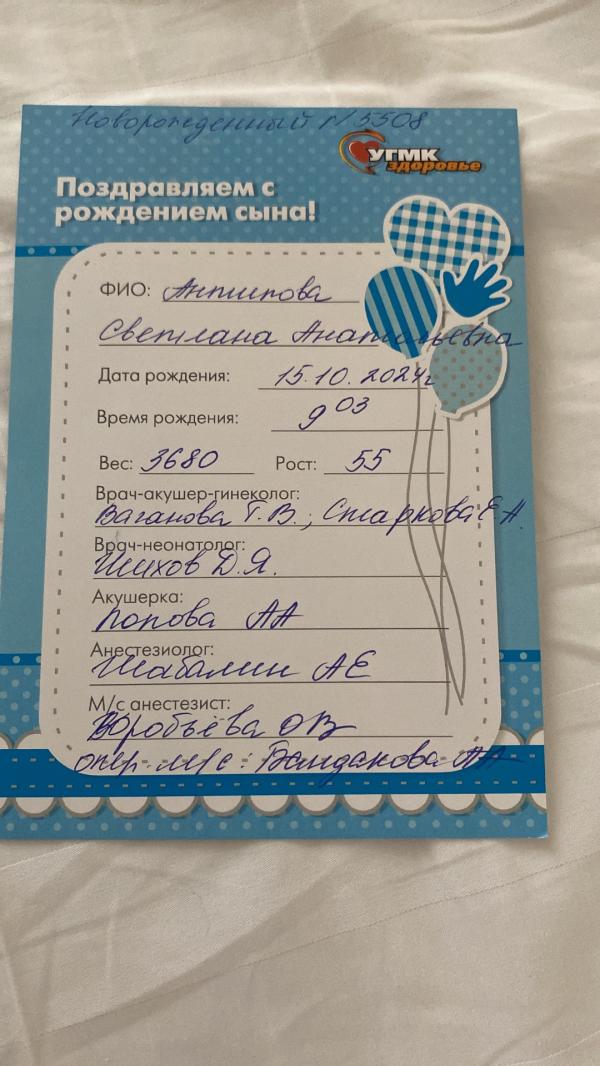 Новорожденный №5508
УГМК
здоровье
Поздравляем с
рождением сына!
ФИО: Антипова
Светлана Анатольевна
Дата рождения: 15.10.2024г
Время рождения: 9 03
Вес: 3680 Рост: 55
Врач-акушер-гинеколог:
Ваганова Т.В.; Старкова Е А.
Врач-неонатолог:
Шихов Д.Я.
Акушерка:
Попова АА
Анестезиолог:
Шабалин АЕ
М/с анестезист:
Воробьёва ОВ
опер. м/с: АА